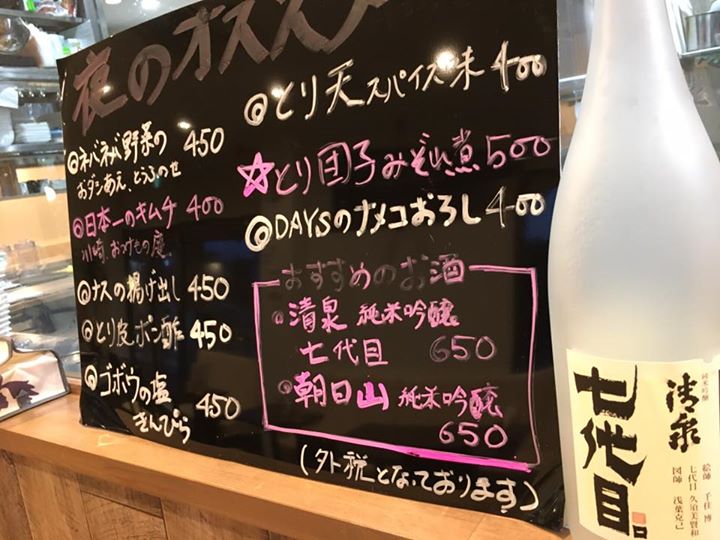 夜のオススメ
◎ネバネバ野菜の 450
おダシあえ、とうふのせ
◎日本一のキムチ 400
川崎、おつけもの慶
◎ナスの揚げ出し 450
◎とり皮ポン酢 450
◎ゴボウの塩
きんぴら 450
◎とり天スパイス味 400
☆とり団子みぞれ煮 500
◎DAYSのナメコおろし 400
おすすめのお酒
◎清泉 純米吟醸
七代目 650
◎朝日山 純米吟醸
650
(外税となっております)
純米吟醸
清泉
七代目
絵師 千住 博
七代目 久須美賢和
図師 浅葉克己